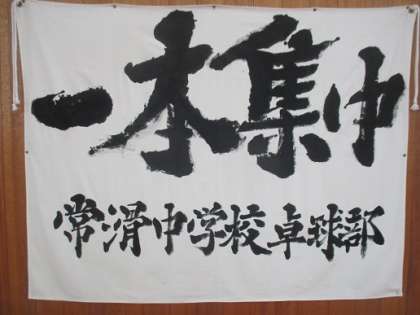 一本集中
常滑中学校卓球部